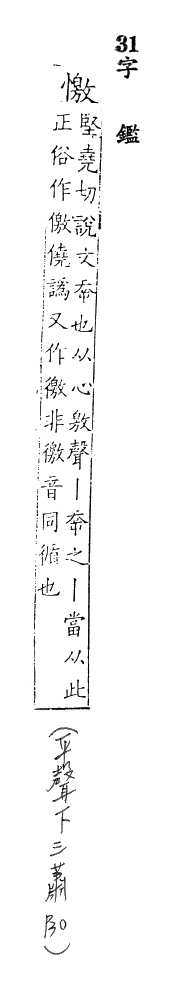 31字 鑑
憿
堅堯切說文幸也从心敫聲丨幸之丨當从此
正俗作儌僥譑又作徼非徼音同循也
(平聲下三蕭30)